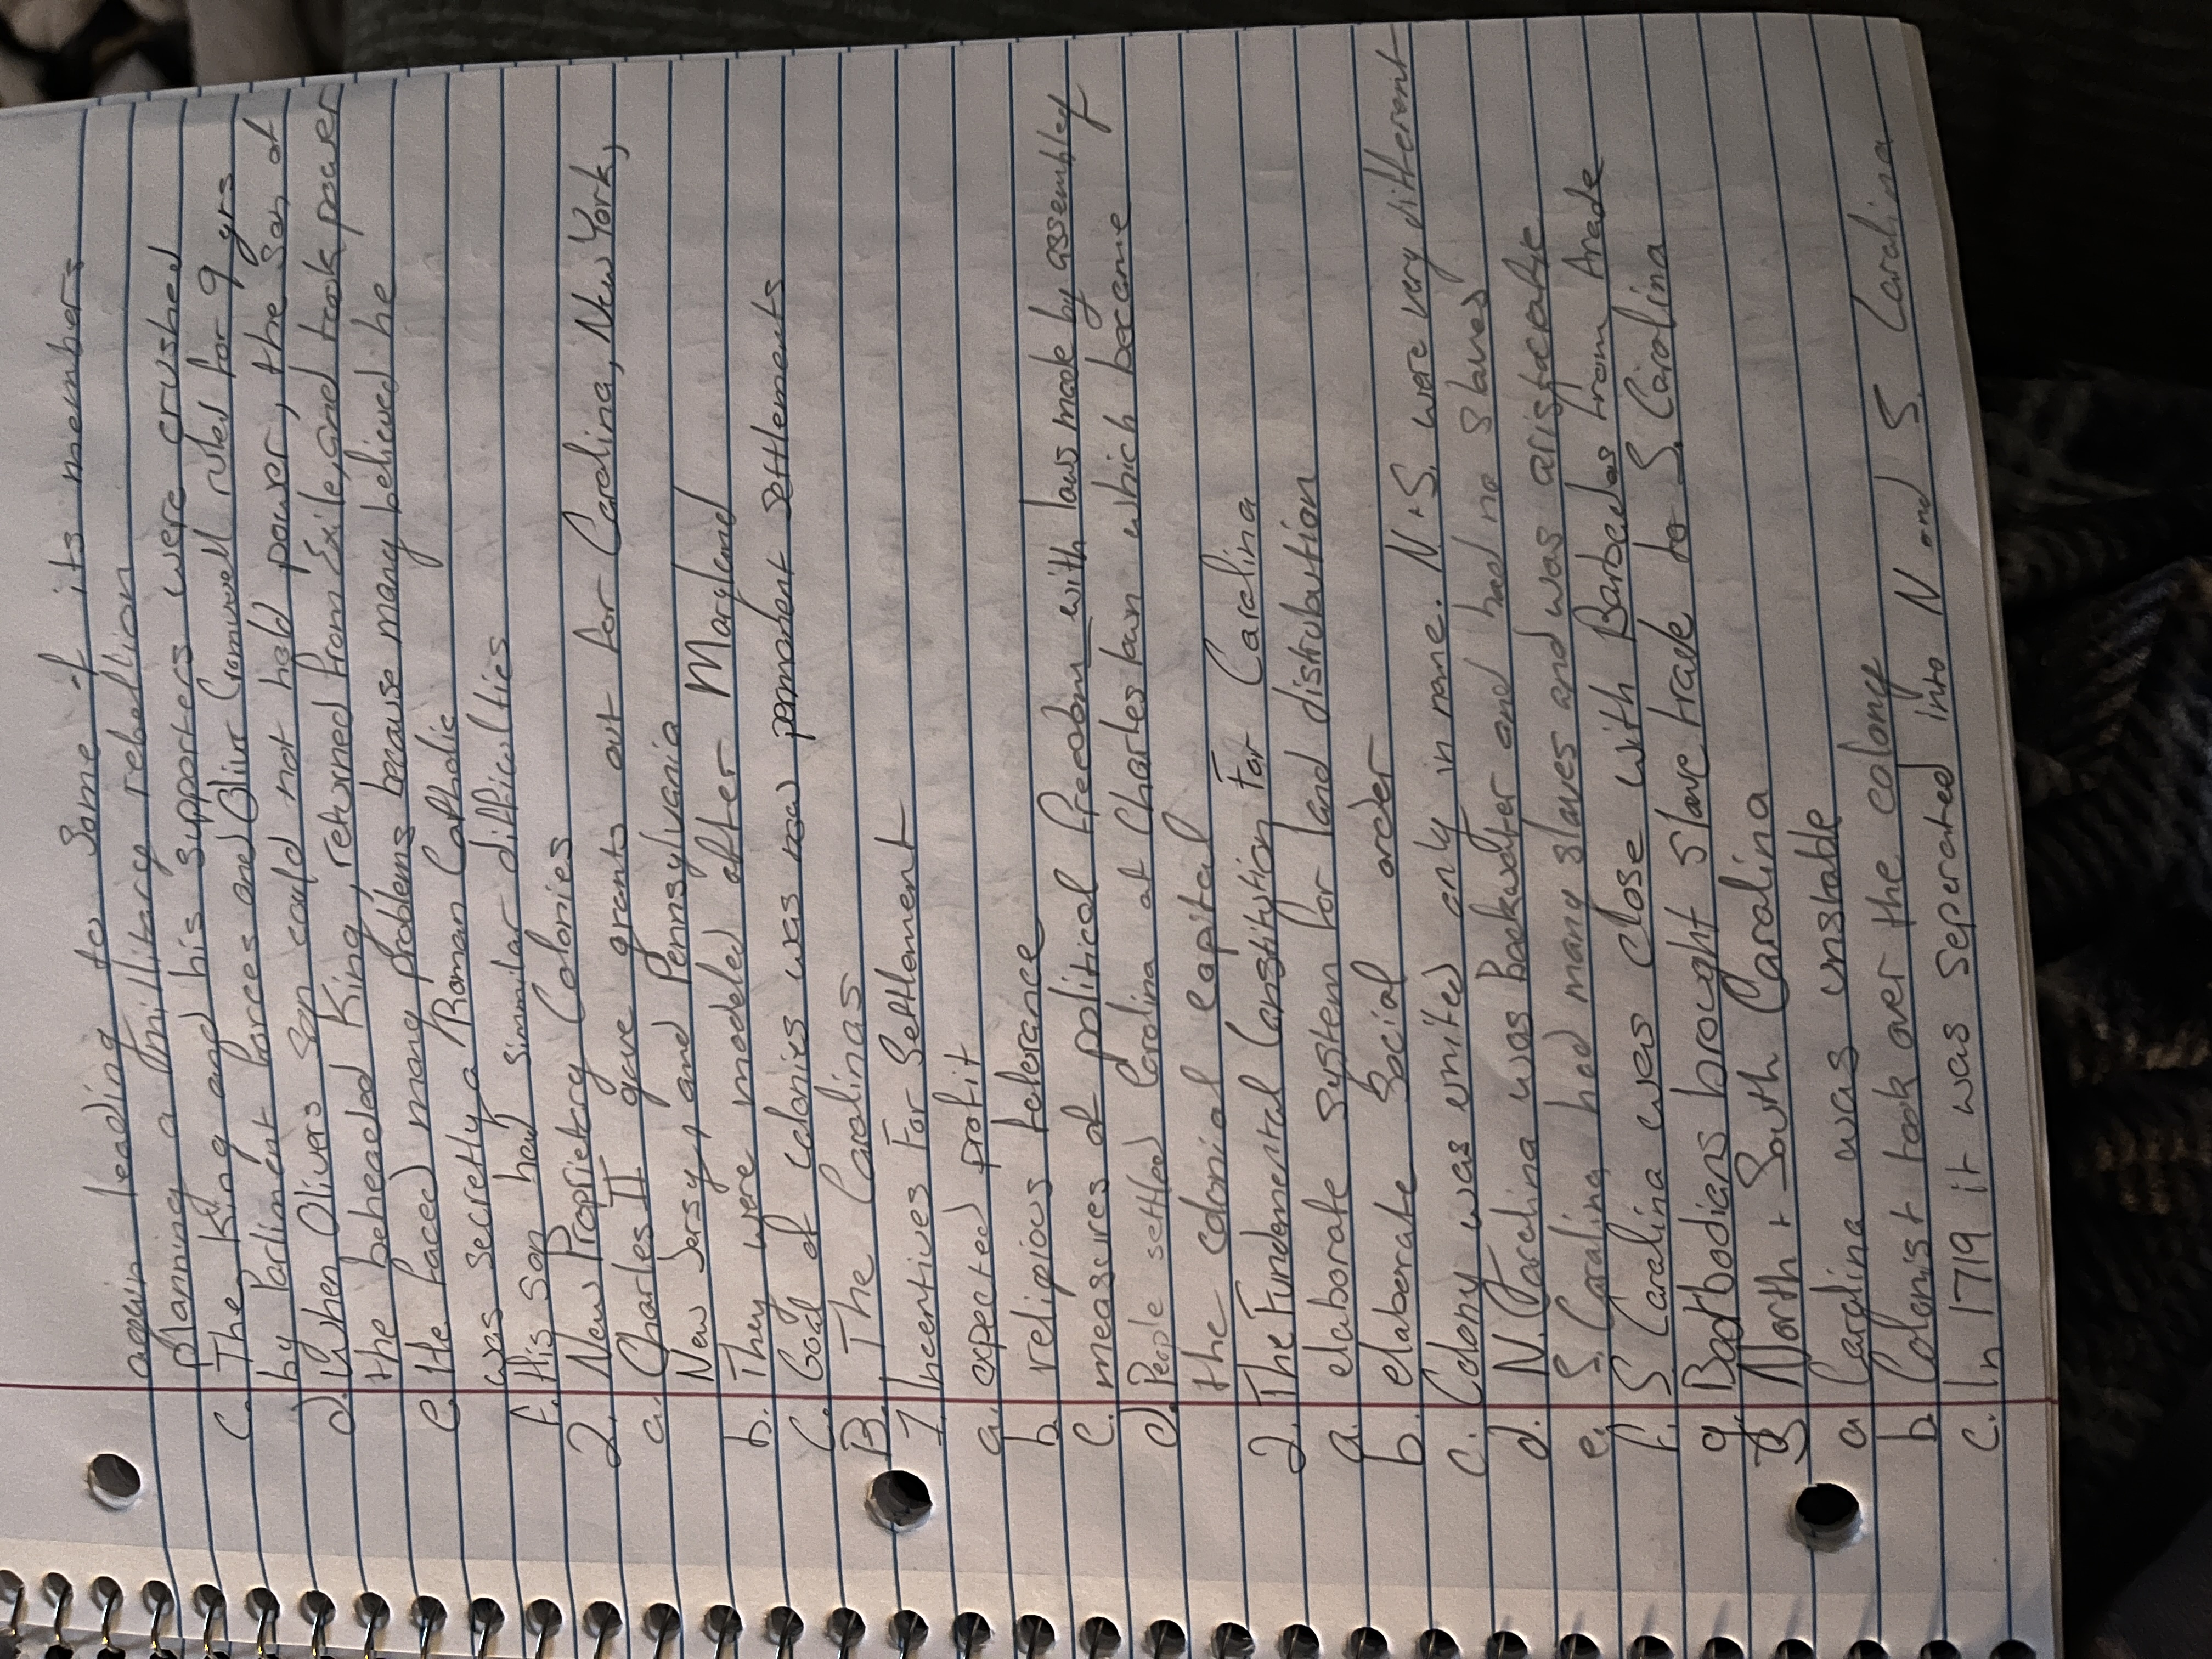 again leading to some of its members
planning a millitary rebellion
C. The King and his supporters were crushed
by Parliment forces and Oliver Cromwell ruled for 9 yrs
d. When Olivers Son could not hold power, the son of
the beheaded King, returned from Exile, and took power
e. He faced many problems because many believed he
was secretly a Roman Catholic
f. His son had simmilar difficulties
2. New Proprietary Colonies
a. Charles II gave grants out for Carolina, New York,
New Jersy, and Pennsylvania
b. They were modeled after Maryland
C. Goal of colonies was now permanent settlements
B. The Carolinas
1. Incentives For Settlement
a. expected profit
b. religious tolerance
C. measures of political freedom with laws made by assembley
d. People settled Carolina at Charles town which became
the colonial capital
2. The Fundemental Constitution For Carolina
a. elaborate system for land distrubution
b. elaborate Social order
C. Colony was united only in name. N + S. were very different
d. N. Carolina was backwater and had no slaves
e. S. Carolina had many slaves and was aristocratic
f. S Carolina was close with Barbados from trade
g. Barbodians brought slave trade to S. Carolina
3 North + South Carolina
a Carolina was unstable
b. Colonist took over the colony
C. In 1719 it was seperated into N and S. Carolina